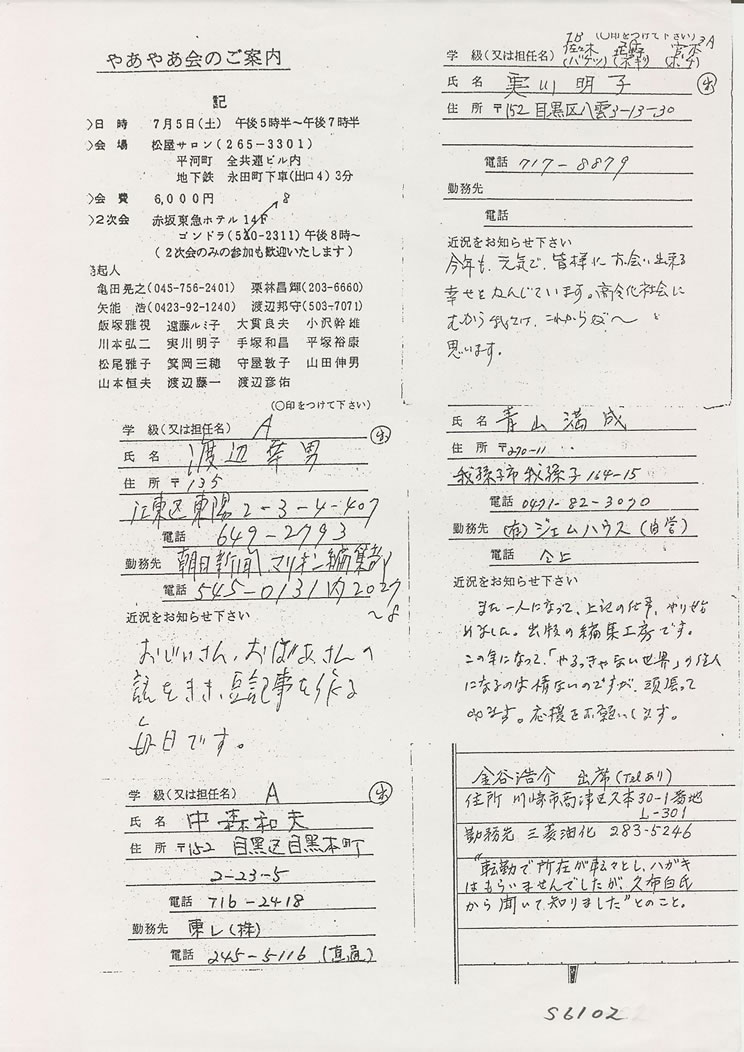 やあやあ会のご案内
記
〉日 時 7月5日(土) 午後5時半〜午後7時半
〉会 場 松屋サロン(265-3301)
平河町 全共連ビル内
地下鉄 永田町下車(出口4)3分
〉会 費 6,000円
8
〉2次会 赤坂東急ホテル14F
ゴンドラ(580-2311)午後8時〜
(2次会のみの参加も歓迎いたします)
起人
亀田晃之(045-756-2401) 栗林昌輝(203-6660)
矢能 浩(0423-92-1240) 渡辺邦守(503-7071)
飯塚雅視 遠藤ルミ子 大貫良夫 小沢幹雄
川本弘二 実川明子 手塚和昌 平塚裕康
松尾雅子 箕岡三穂 守屋敦子 山田伸男
山本恒夫 渡辺藤一 渡辺彦佑
(〇印をつけて下さい)
学 級(又は担任名) A
氏 名 渡辺幸男 出
住 所 〒135
江東区東陽2-3-4-407
電話 649-2793
勤務先 朝日新聞 マリオン編集部
電話 545-0131 内2027
〜8
近況をお知らせ下さい
おじいさん、おばあさんの
話をきき、豆記事を作る
毎日です。
学 級(又は担任名) A 出
氏 名 中森和夫
住 所 〒152 目黒区目黒本町
2-23-5
電話 716-2418
勤務先 東レ(株)
電話 245-5116 (直通)
(〇印をつけて下さい) 3A
学 級(又は担任名) 佐々木 宮本
氏 名 実川明子 出
住 所 〒152 目黒区八雲3-13-30
電話 717-8879
勤務先
電話
近況をお知らせ下さい
今年も、元気で、皆様にお会い出来る
幸せをかんじています。高令化社会に
むかう 我々は、これからだ〜 と
思います。
氏 名 青山満成
住 所 〒270-11
我孫子市我孫子164-15
電話 0471-82-3070
勤務先 (有)ジェムハウス(自営)
電話 仝上
近況をお知らせ下さい
また一人になって、上記の仕事、やり始
めました。出版の編集工房です。
この年になって、「やるっきゃない世界」の住人
になるのは情ないのですが、頑張って
みます。応援をお願いします。
金谷浩介 出席(Telあり)
住所 川崎市高津区久本30-1番地
L-301
勤務先 三菱油化 283-5246
"転勤で所在が転々とし、ハガキ
はもらいませんでしたが 久布白氏
から聞いて知りました"とのこと。
S6102